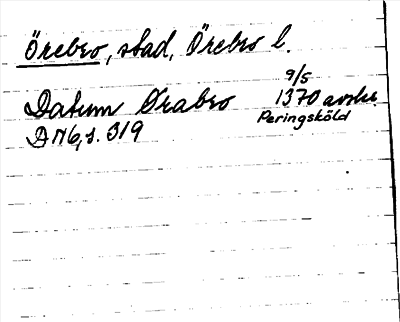 Örebro, stad, Örebro l.
9/5
Datum Ørabro 1370 avskr.
Peringsköld
DN6, s. 319